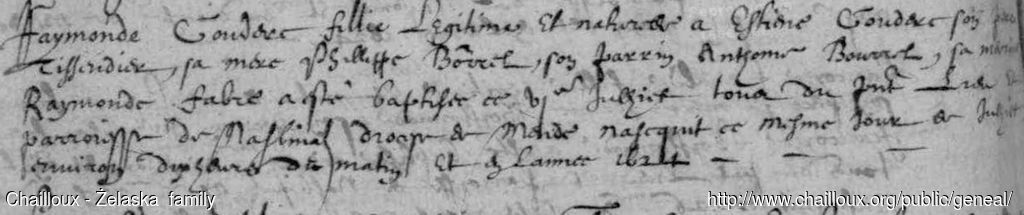 Raymonde Couderc fillie Legitime Et naturelle a Estiene Couderc son pere
Tisserdier, sa mere Phillippe Borrel, son parrin Anthome Bourrel, sa
Raymonde fabre a esté baptisee ce vje Juliet tout du pnt Lieu
parroiesse de Maslimal diocese de Mende, nasequit ce mesme Jour de Juliet
environ heures de matin Et Lannee 1621
Chailloux - Żelaska family
http://www.chailloux.org/public/geneal/